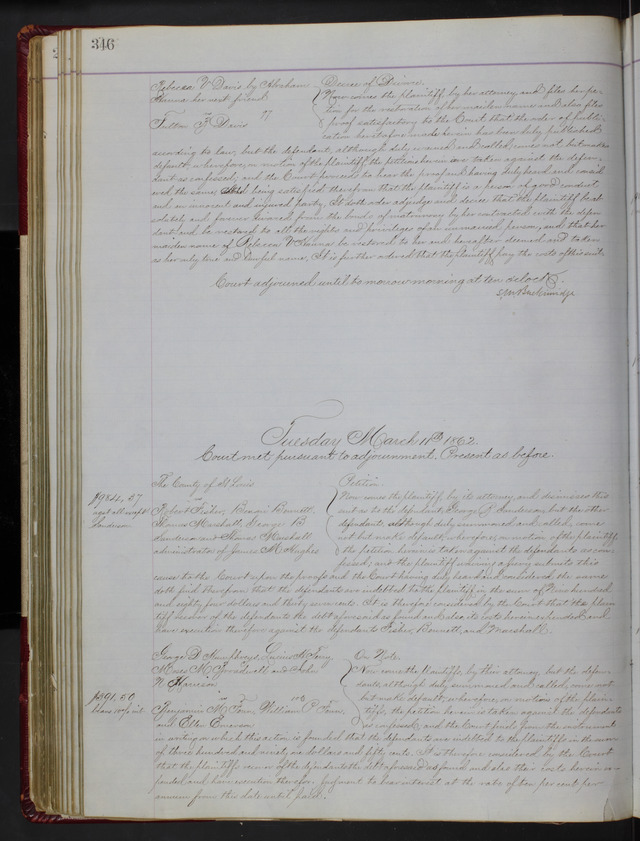 346
Rebecca V Davis by Abraham
Hanna her next friend
vs 17
Fulton F Davis
Decree of Divorce.
Now comes the plaintiff by her attorney and files her pe-
tion for the restoration of her maiden name and also files
proof satisfactory to the Court that the order of publi-
cation heretofore made herein has been duly published
according to law, but the defendant, although duly summoned and called, comes not but makes
default, wherefore, on motion of the plaintiff the petition herein is taken against the defen-
dant as confessed, and the Court proceeds to hear the proof and having duly heard and consid
ered the same, and being satisfied therefrom that the plaintiff is a person of good conduct
and an innocent and injured party, It doth order adjudge and decree that the plaintiff be ab-
solutely and forever divorced from the bonds of matrimony by her contracted with the defen
dant, and be restored to all the rights and privileges of an unmarried person, and that her
maiden name of Rebecca V Hanna be restored to her and hereafter deemed and taken
as her only true and lawful name. It is further ordered that the plaintiff pay the costs of this suit.
Court adjourned until tomorrow morning at ten oclock.
S M Breckinridge
Tuesday March 11th 1862.
Court met pursuant to adjournment. Present as before.
$984.37
agst all except
Sanderson
The County of St Louis
vs
Robert Fisher, Bennett
Thomas Marshall, George P
Sanderson and Thomas Marshall
administrator of James McHughes
Petition
Now comes the plaintiff by its attorney and dismisses this
suit as to the defendant George P Sanderson, but the other
defendants although duly summoned and called, come
not but make default, wherefore, on motion of the plaintiff,
the petition herein is taken against the defendants as con-
fessed, and the plaintiff waiving a jury submits this
cause to the Court upon the proofs and the Court having duly heard and considered the same
doth find therefrom that the defendants are indebted to the plaintiff in the sum of Nine hundred
and eighty four dollars and thirty seven cents. It is therefore considered by the Court that the plain
tiff recover of the defendants the debt aforesaid as found and also its costs herein expended and
have execution therefor against the defendants Fisher, Bennett, and Marshall.
$391.50
George D Humphreys,
Moses M and John
N Harrison
vs
Benjamin M William C
and Ellen Emerson
On Note.
Now come the plaintiffs by their attorney but the defen
dants although duly summoned and called, come not
but make default, wherefore, on motion of the plain-
tiffs, the petition herein is taken against the defendants
as confessed, and the Court finds from the instrument
in writing on which this action is founded that the defendants are indebted to the plaintiffs in the sum
of three hundred and ninety one dollars and fifty cents. It is therefore considered by the Court
that the plaintiffs recover of the defendants the debt aforesaid as found and also their costs herein ex-
pended and have execution therefor. Judgment to bear interest at the rate of ten per cent per
annum from this date until paid.